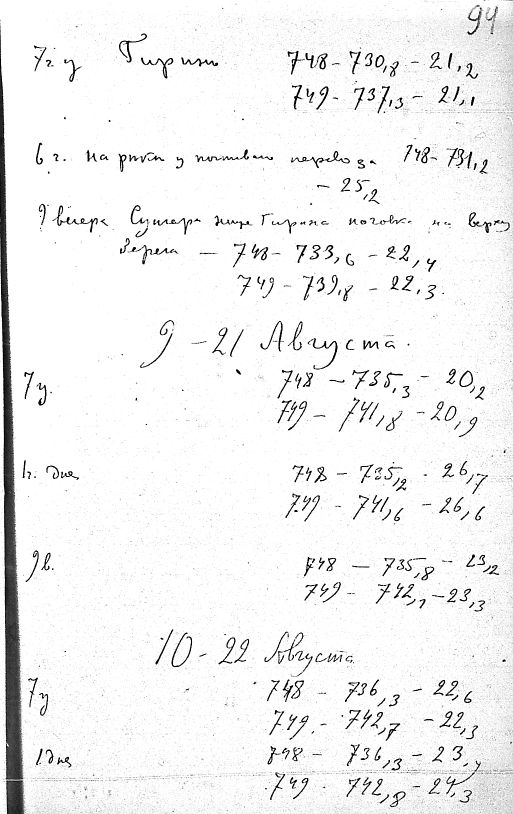 94
7 г у Гиринъ 748 - 730,8 - 21,2
749 - 737,3 - 21,1
6 г. на реки у перевоза 748 - 731,2
- 25,2
9 вечера Сунгари ниже Гирина на верху
берега - 748 - 733,6 - 22,4
749 - 739,8 - 22,3.
9 - 21 Августа.
7 у. 748 - 735,3 - 20,2
749 - 741,8 - 20,9
1 г. дня 748 - 735,2 - 26,7
749 - 741,6 - 26,6
9 в. 748 - 735,8 - 23,2
749 - 742,1 - 23,3
10 - 22 Августа
7 у 748 - 736,3 - 22,6
749 - 742,7 - 22,3
1 дня 748 - 736,3 - 23,
749 - 742,8 - 24,3